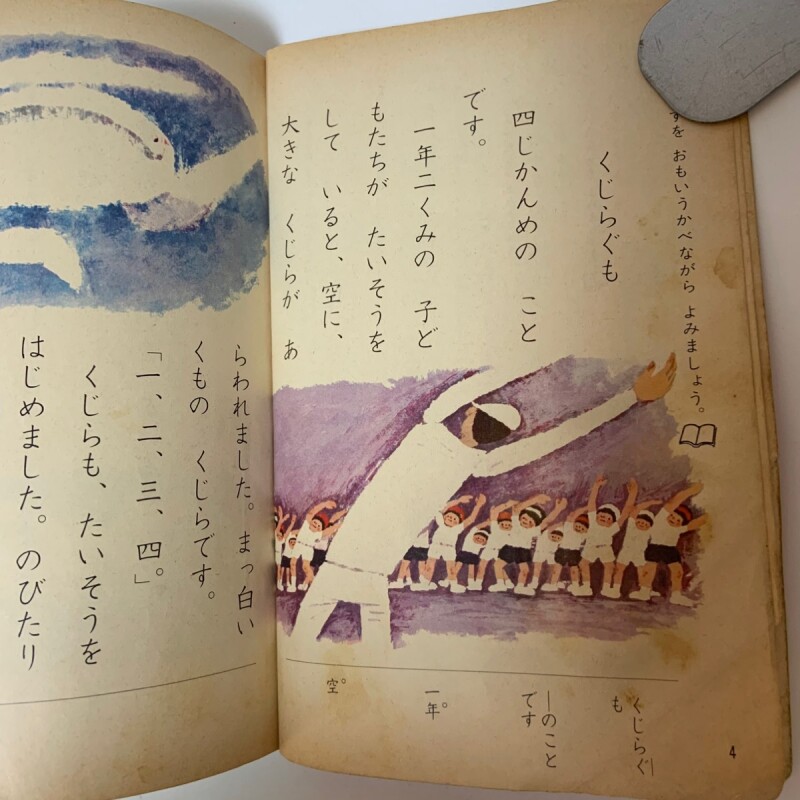 すを おもいうかべながら よみましょう。
くじらぐも
四じかんめの こと
です。
一年二くみの 子ど
もたちが たいそうを
して いると、空に、
大きな くじらが あ
らわれました。まっ白い
くもの くじらです。
「一、二、三、四」。
くじらも、たいそうを
はじめました。のびたり
くじらぐ
も
―のこと
です
一年。
空。
4